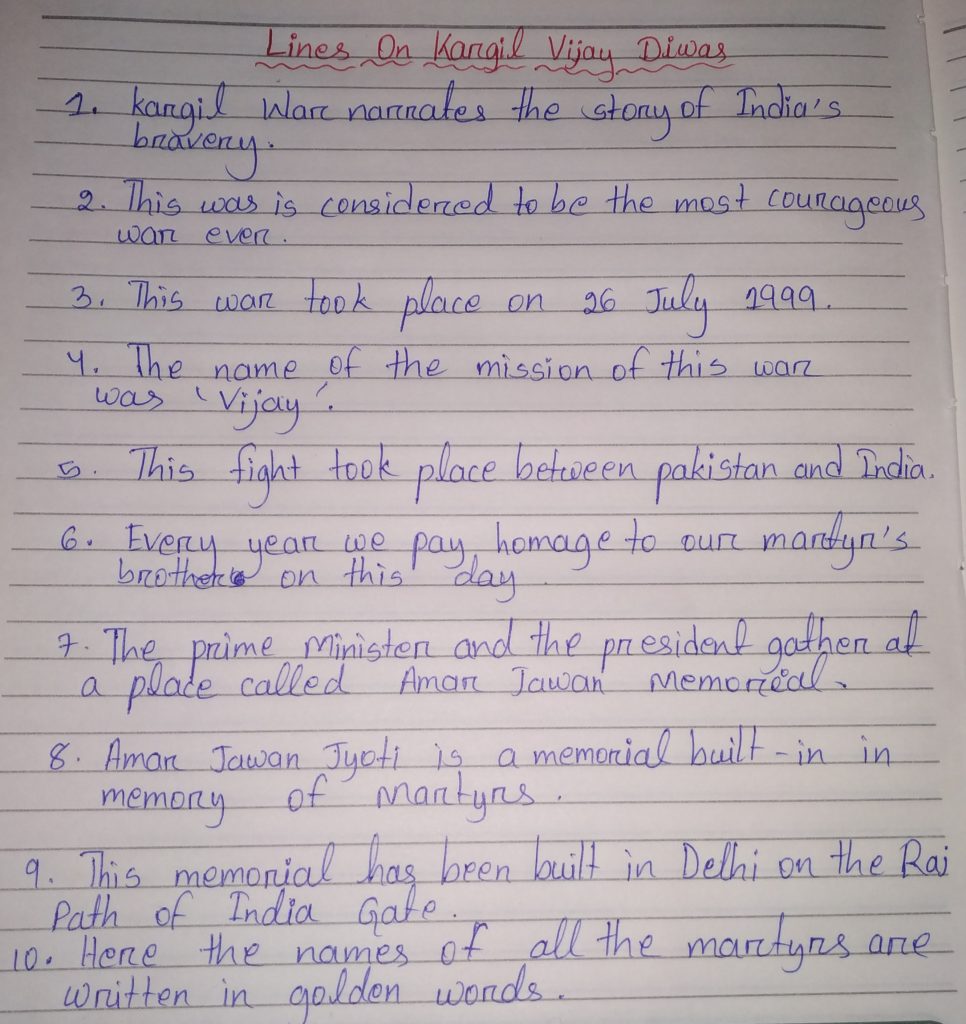 Lines On Kargil Vijay Diwas
1. kargil War narrates the story of India's
bravery.
2. This was is considered to be the most courageous
war ever.
3. This war took place on 26 July 1999.
4. The name of the mission of this war
was 'Vijay'.
5. This fight took place between pakistan and India.
6. Every year we pay homage to our martyr's
brothers on this day
7. The prime Minister and the president gather at
a place called Amar Jawan Memorial.
8. Amar Jawan Jyoti is a memorial built-in in
memory of Martyrs.
9. This memorial has been built in Delhi on the Raj
Path of India Gate.
10. Here the names of all the martyrs are
written in golden words.